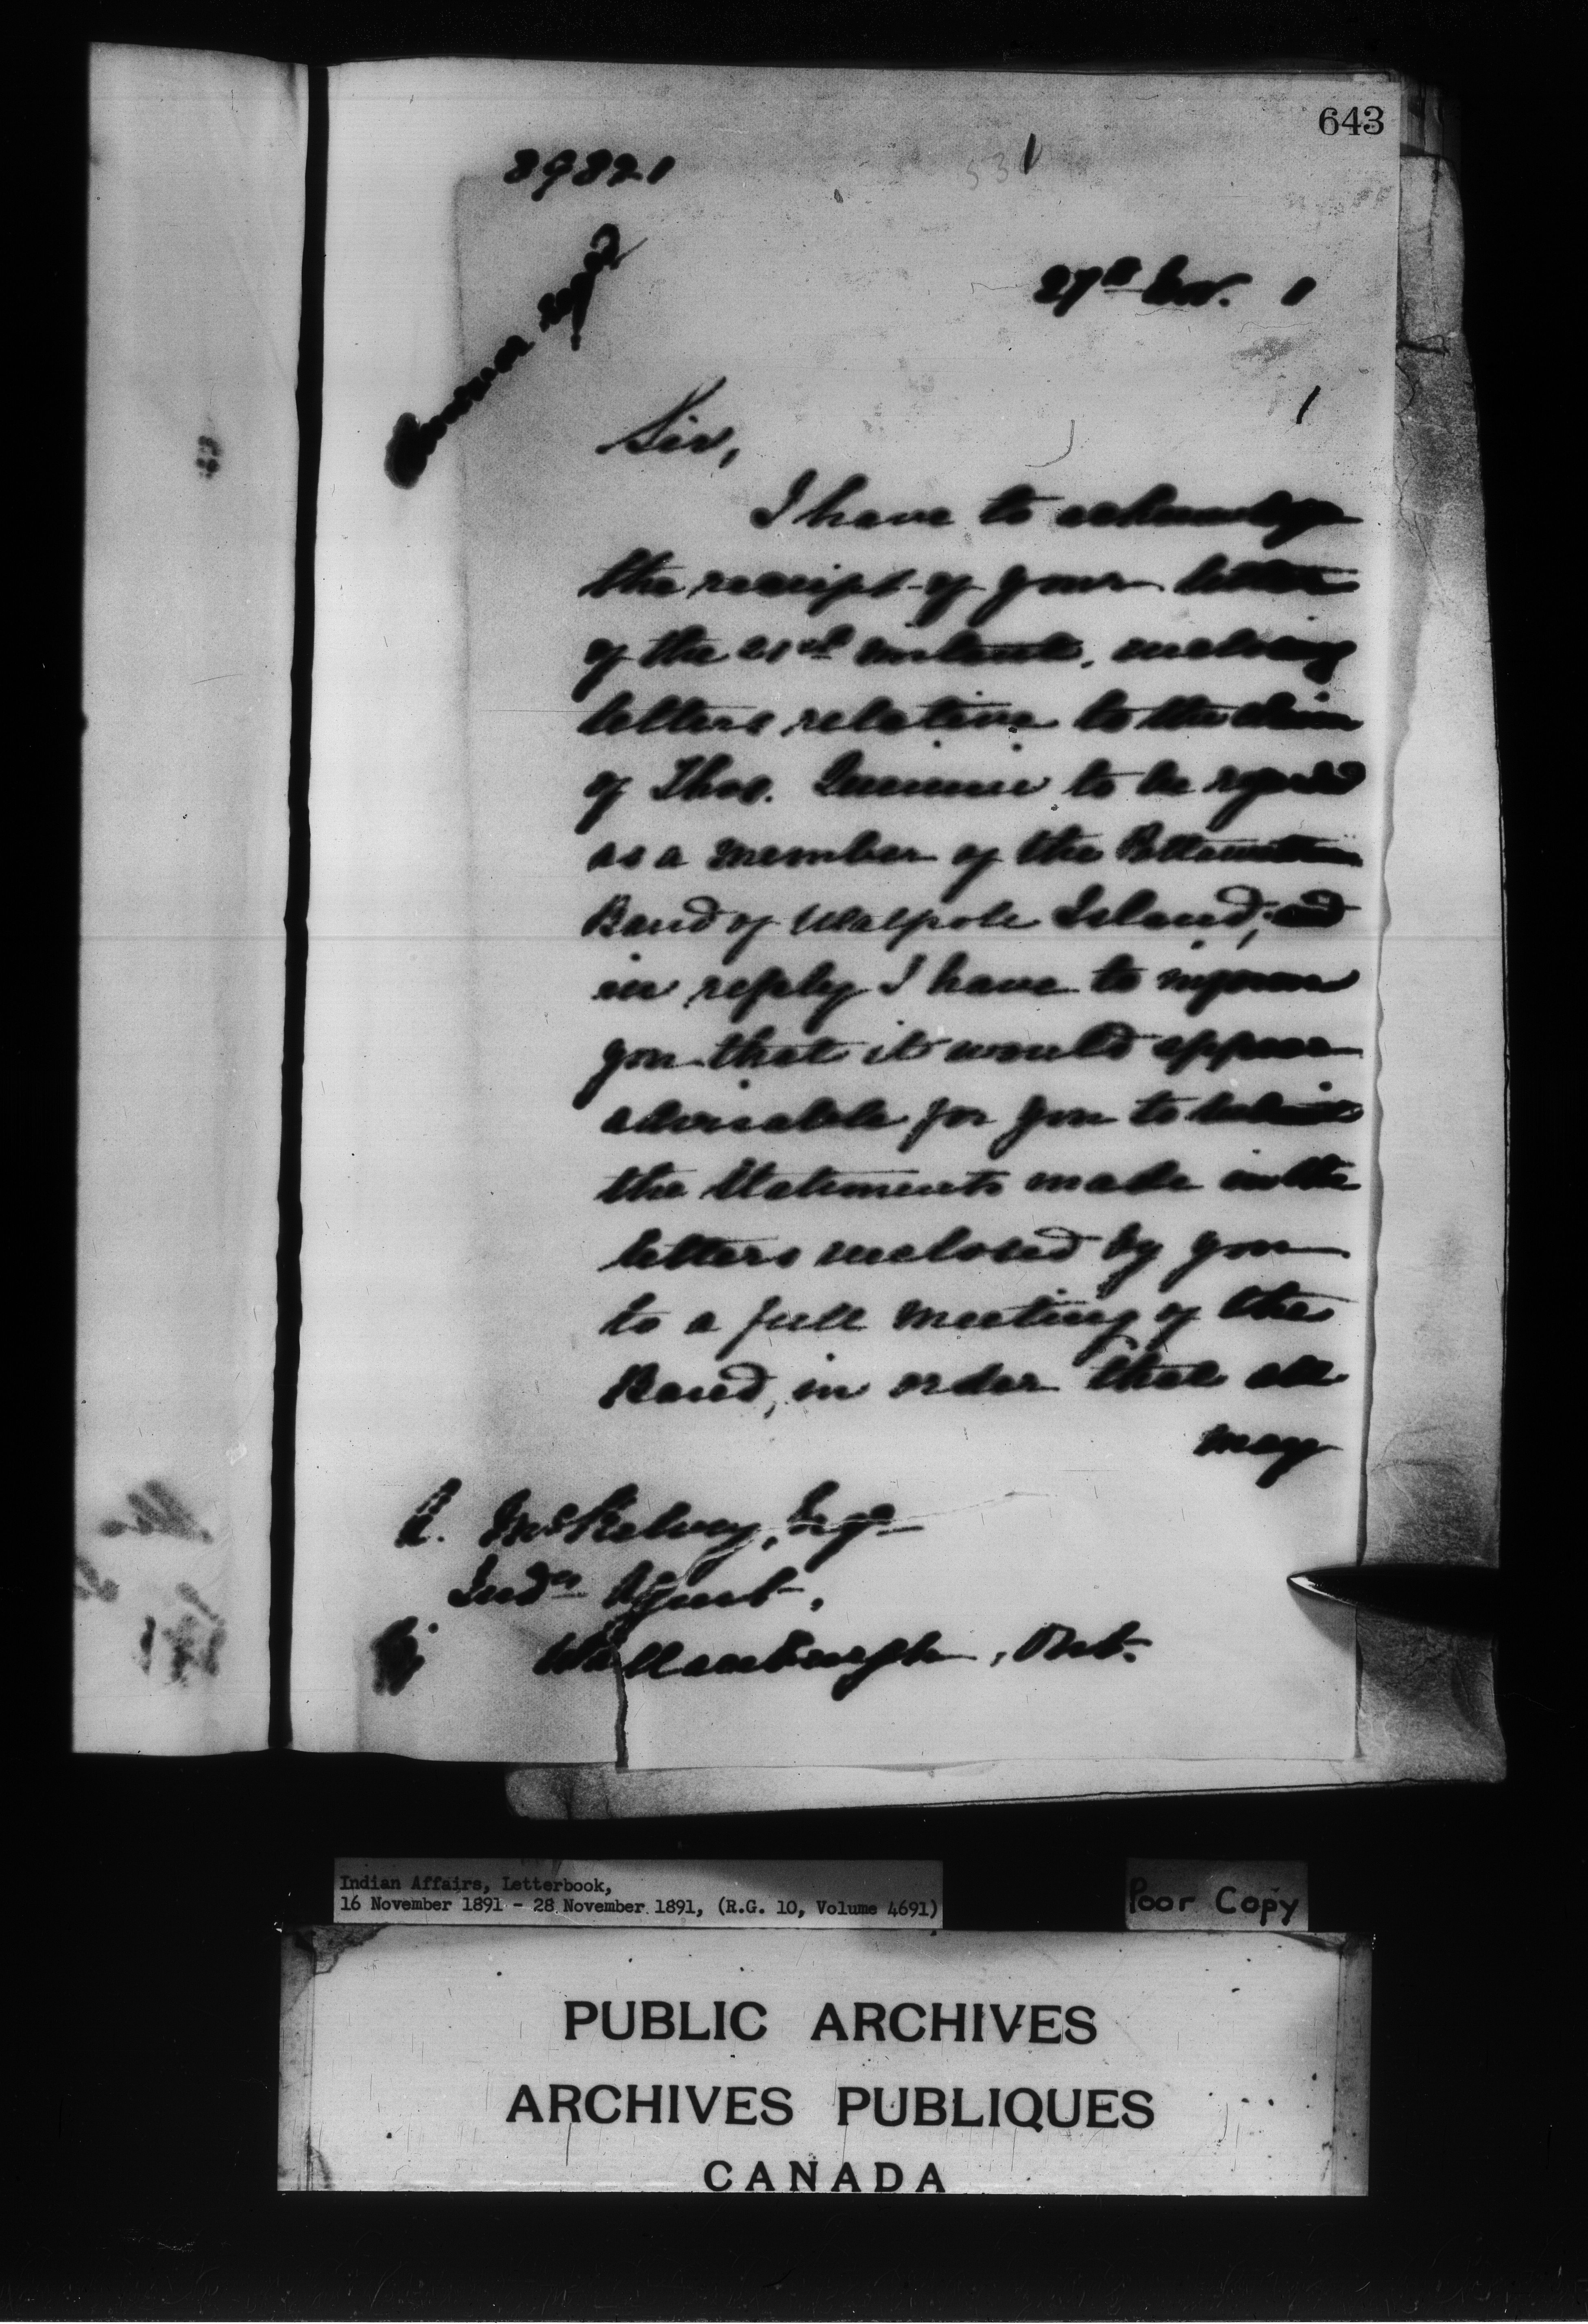 643
89821
27th Nov. 1
Sir,
I have to acknowledge
the receipt of your letter
of the 21st instant, enclosing
letters relative to the claim
of Thos. to be regarded
as a member of the
Band of Walpole Island, and
in reply I have to inform
you that it would appear
advisable for you to submit
the statements made in the
letters enclosed by you
to a full meeting of the
Band, in order that all
may
A. McKelvey, Esqr
Indn Agent,
Wallaceburgh, Ont.
Indian Affairs, Letterbook,
16 November 1891 - 28 November 1891, (R.G. 10, Volume 4691)
Poor Copy
PUBLIC ARCHIVES
ARCHIVES PUBLIQUES
CANADA